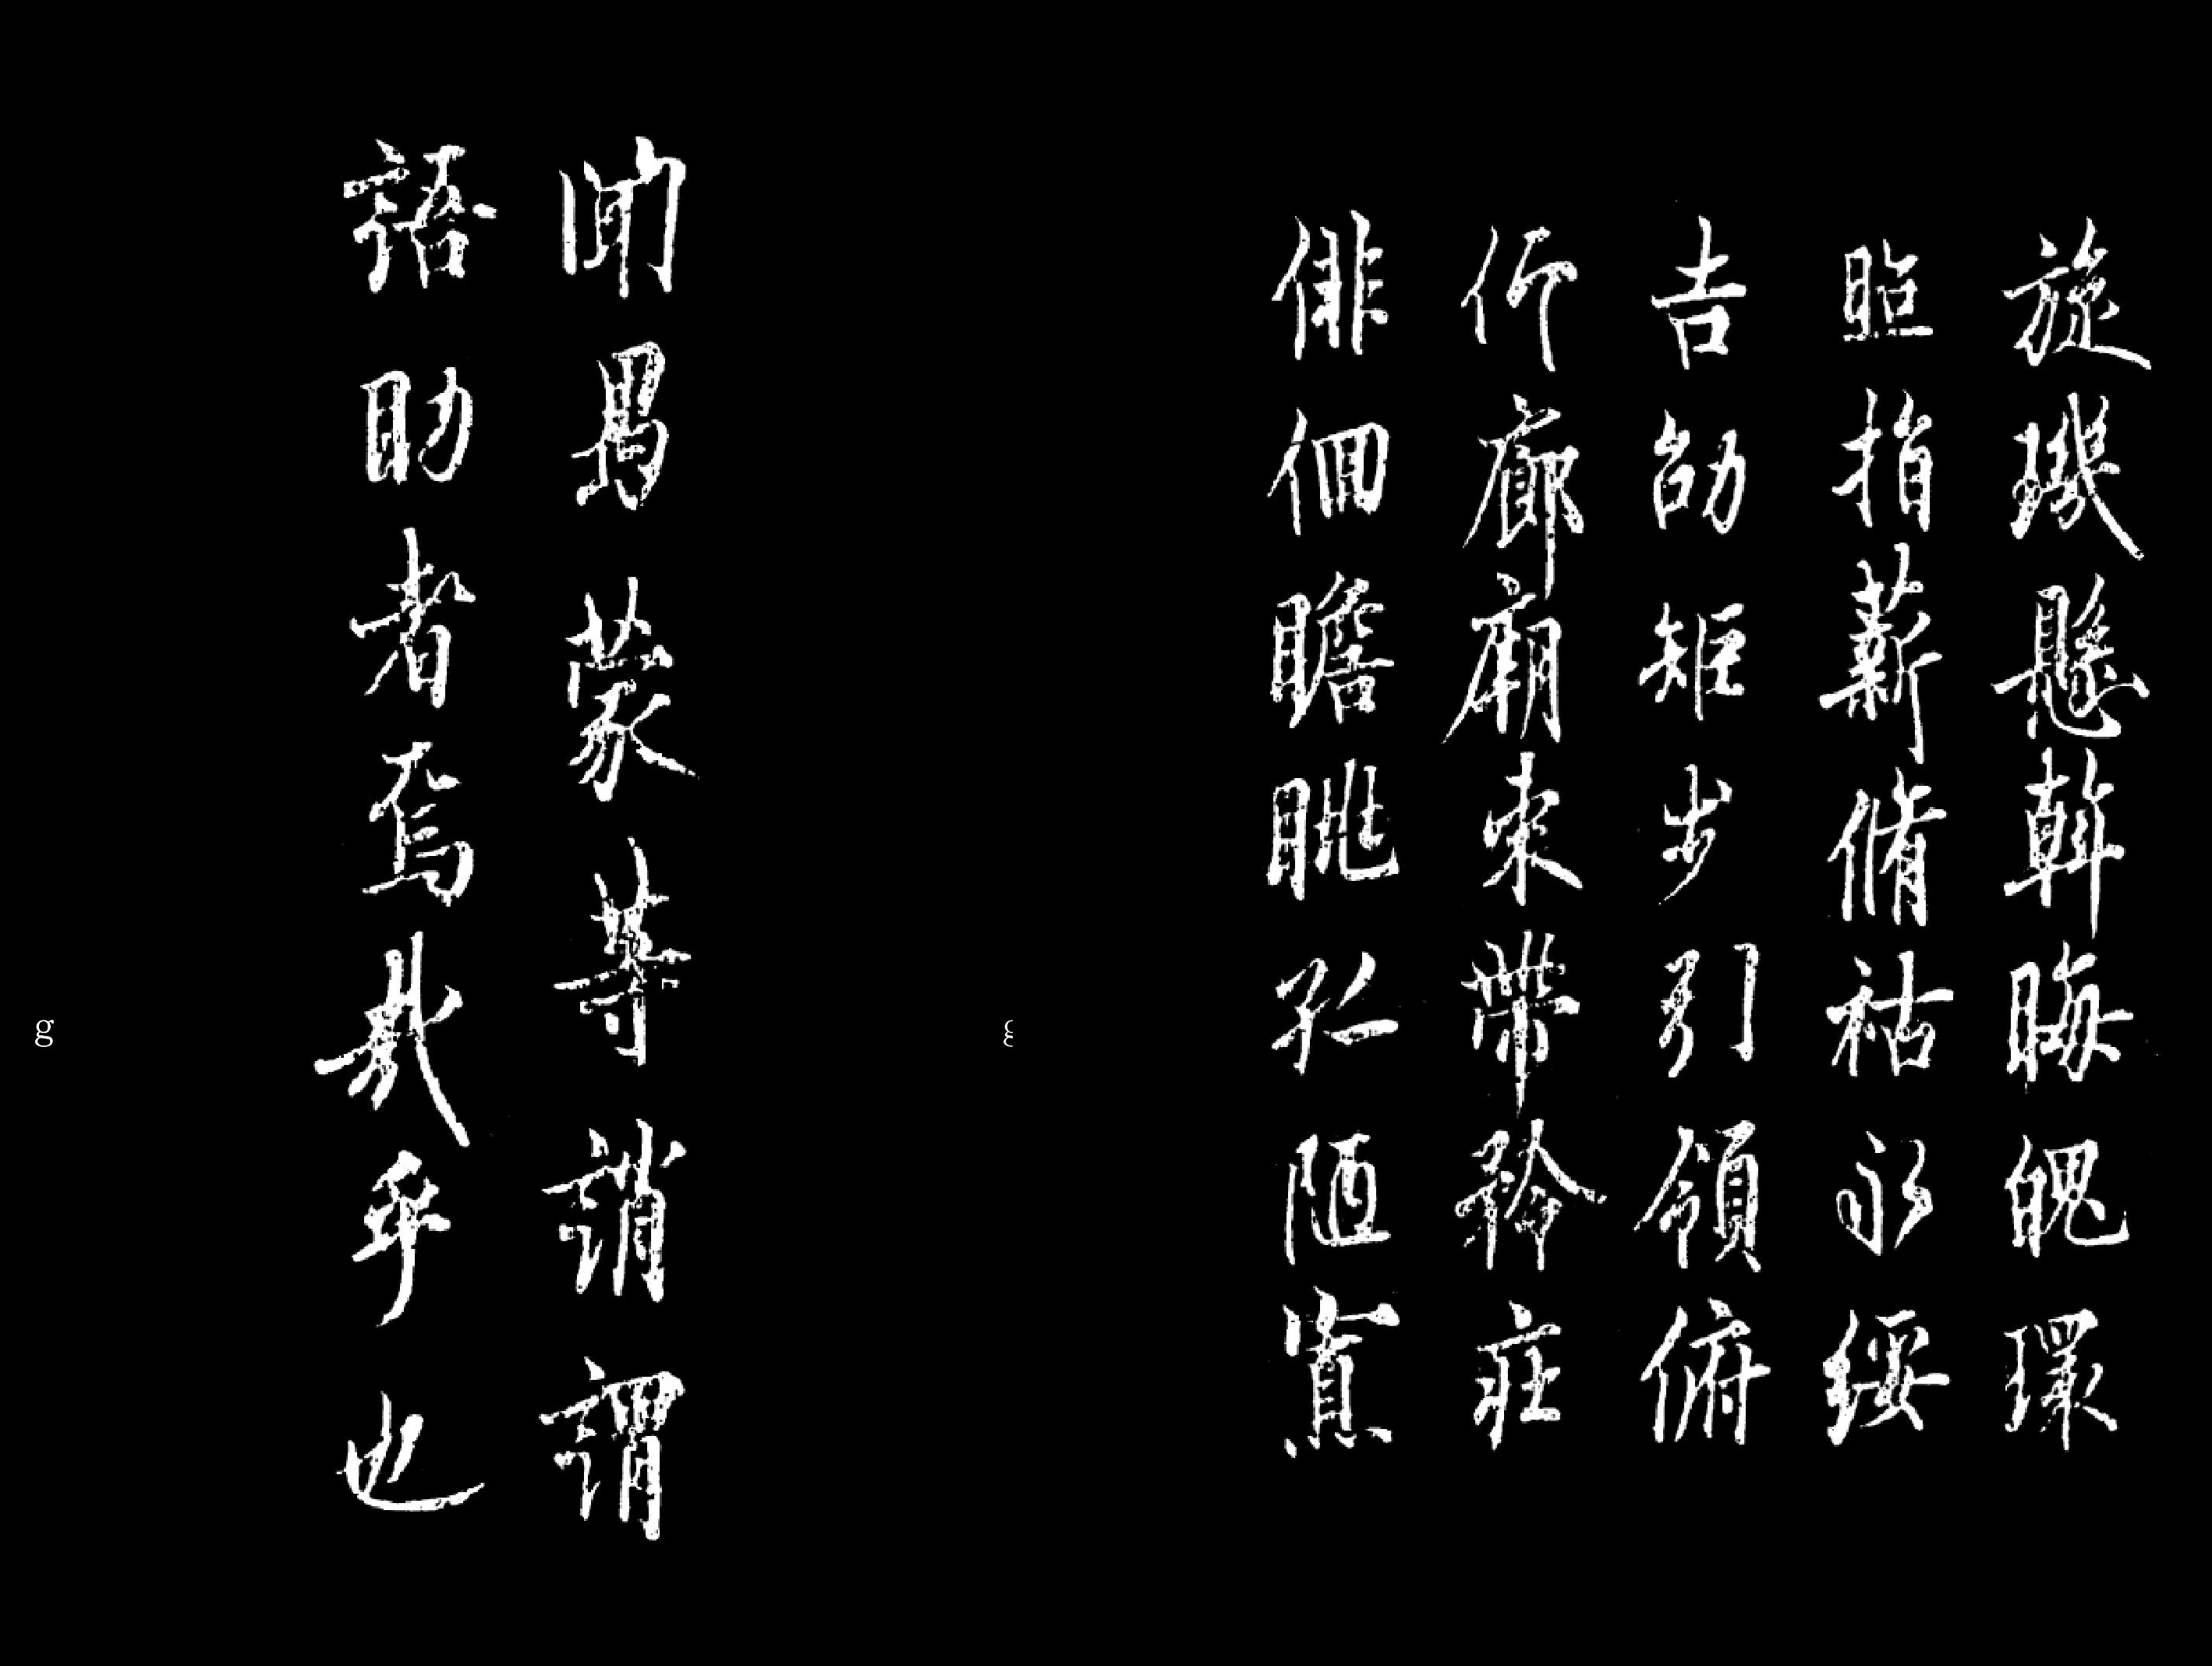 旋璣懸斡晦魄環
照指薪脩祜永綏
吉劭矩步引領俯
仰廊廟束帶矜莊
俳佪瞻眺孤陋寡
聞愚蒙等誚謂
語助者焉哉乎也
g